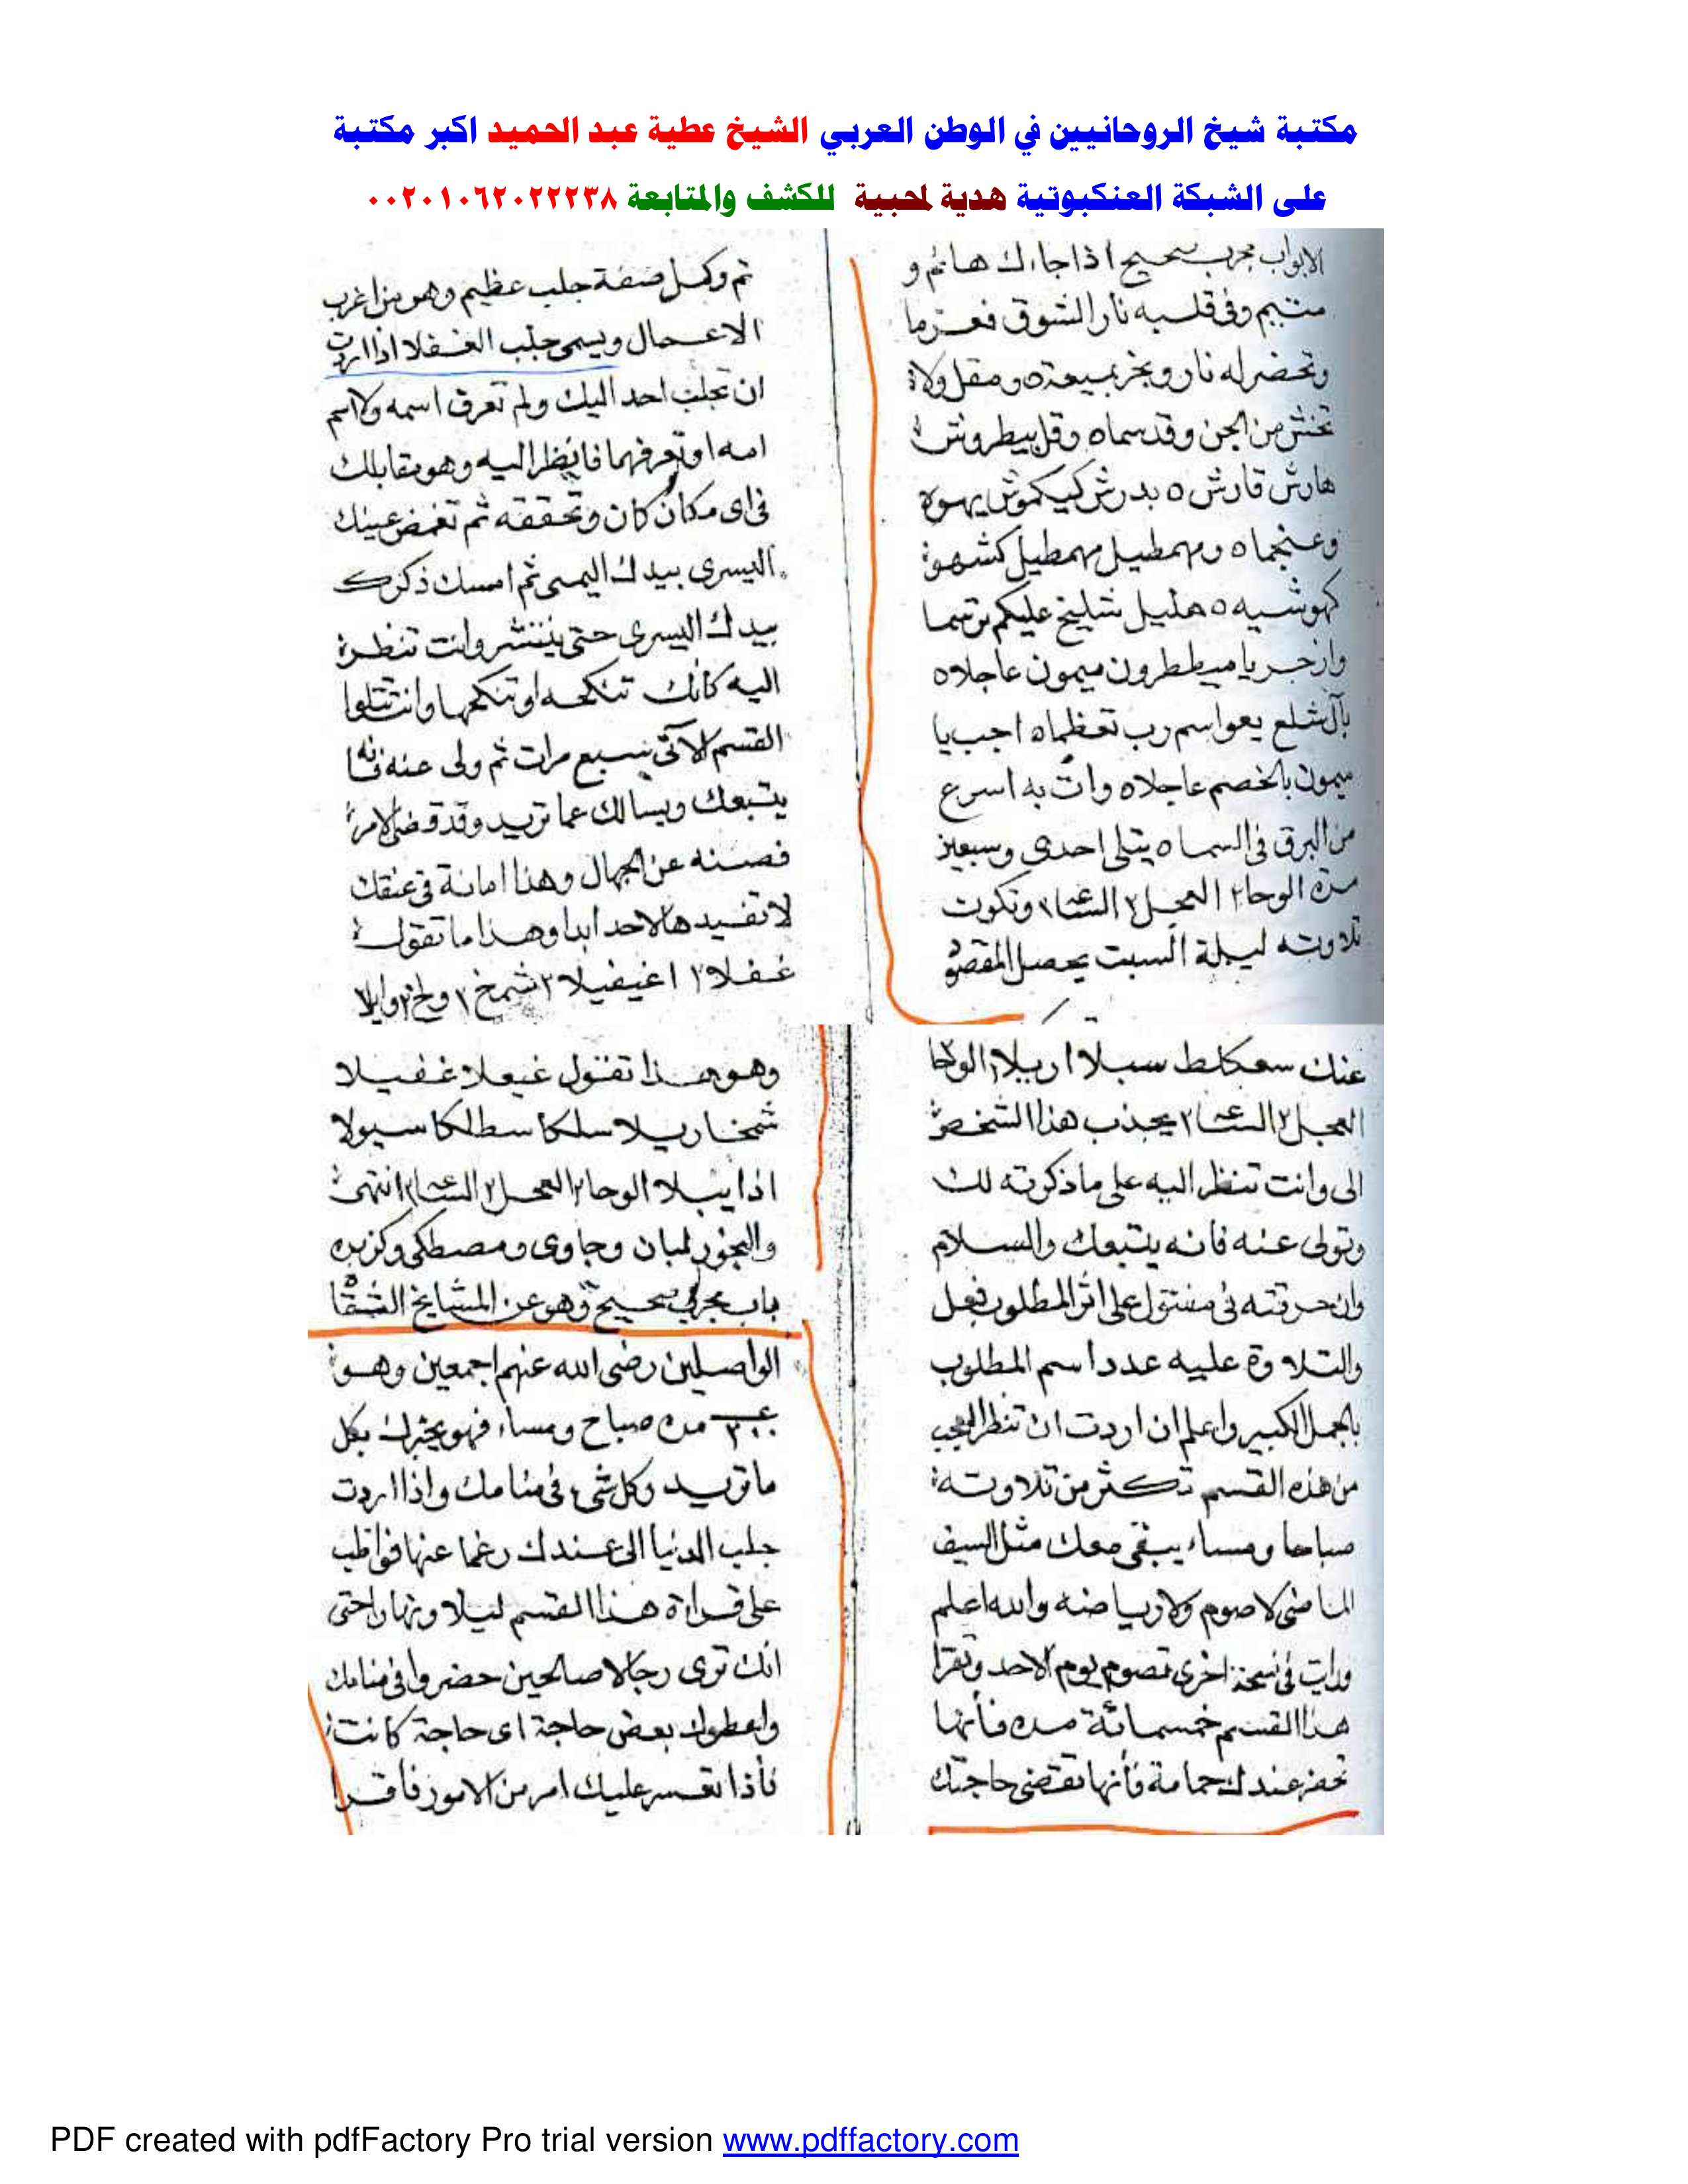 مكتبة شيخ الروحانيين في الوطن العربي الشيخ عطية عبد الحميد اكبر مكتبة
على الشبكة العنكبوتية هدية لمحبية للكشف والمتابعة ٠٠٢٠١٠٦٢٠٢٢٢٣٨
الابواب مجرب صحيح اذا جاءك هائم و
متيم وفى قلبه نار الشوق فعزما
وتحضر له نار وبخر بميعة ومقل ولاة
تخش من الجن وقد سماه وقل بيطروش
هارش قارش ه بدرش كيكموش يهوه
وعنجماه ومهمطيل مهمطيل كشهو
كهوشيه ه هليل شليخ عليكم برشما
وازجر يا ميططرون ميمون عاجلاه
بآل شلع يعو اسم رب تعظماه اجب يا
ميمون بالخصم عاجلاه وات به اسرع
من البرق فى السماه يتلى احدى وسبعين
مرة الوحا٢ العجل٢ الساعة٢ وتكون
تلاوته ليلة السبت يحصل المقصو
ثم وكمل صفة جلب عظيم وهو من اغرب
الاعمال ويسمى جلب الغفلا اذا اردت
ان تجلب احد اليك ولم تعرف اسمه ولا اسم
امه او تعرفهما فانظر اليه وهو مقابلك
فى اى مكان كان وتحققه ثم تغمض عينك
اليسرى بيدك اليمنى ثم امسك ذكرك
بيدك اليسرى حتى ينتشر وانت تنظره
اليه كانك تنكحه او تنكحها وانت تتلوا
القسم الآتى سبع مرات ثم ولى عنه فانه
يتبعك ويسالك عما تريد وقد قضى الامر
فصنه عن الجهال وهذا امانة فى عنقك
لا تفيدها لاحد ابدا وهذا ما تقول
غفلا٢ اغيفيلا٢ شمخ١ وايلا
عنك سعكلط سبلا اربلا الوحا٢
العجل٢ الساعة٢ يجذب هذا الشخص
الى وانت تنظر اليه على ما ذكرته لك
وتولى عنه فانه يتبعك والسلام
وان حرقته فى مفتول على اثر المطلوب فعل
والتلاوة عليه عدد اسم المطلوب
بالجمل الكبير واعلم ان اردت ان تنظر العجب
من هذه القسم تكثر من تلاوته
صباحا ومساء يبقى معك مثل السيف
الماضى لا صوم ولا رياضه والله اعلم
ورايت فى نسخة اخرى تصوم يوم الاحد وتقرا
هذا القسم خمسمائة مره فأنها
تحضر عندك حمامة فأنها تقضى حاجتك
وهو هذا تقول غيعلا غفيلا
شمخا ريلا سلكا سطلكا سيولا
اذا ييلا الوحا٢ العجل٢ الساعة٢ انتهى
والبخور لبان وجاوى ومصطكى وكزبره
باب مجرب صحيح وهو عن المشايخ الثقا
الواصلين رضى الله عنهم اجمعين وهو
٣٠٠ مره صباح ومساء فهو يخبرك بكل
ما تريد وكل شئ فى منامك واذا اردت
جلب الدنيا الى عندك رغما عنها فواظب
على قراءة هذا القسم ليلا ونهارا حتى
انك ترى رجالا صالحين حضروا فى منامك
واعطوك بعض حاجة اى حاجة كانت
فأذا تعسر عليك امر من الامور فأقرا
PDF created with pdfFactory Pro trial version www.pdffactory.com